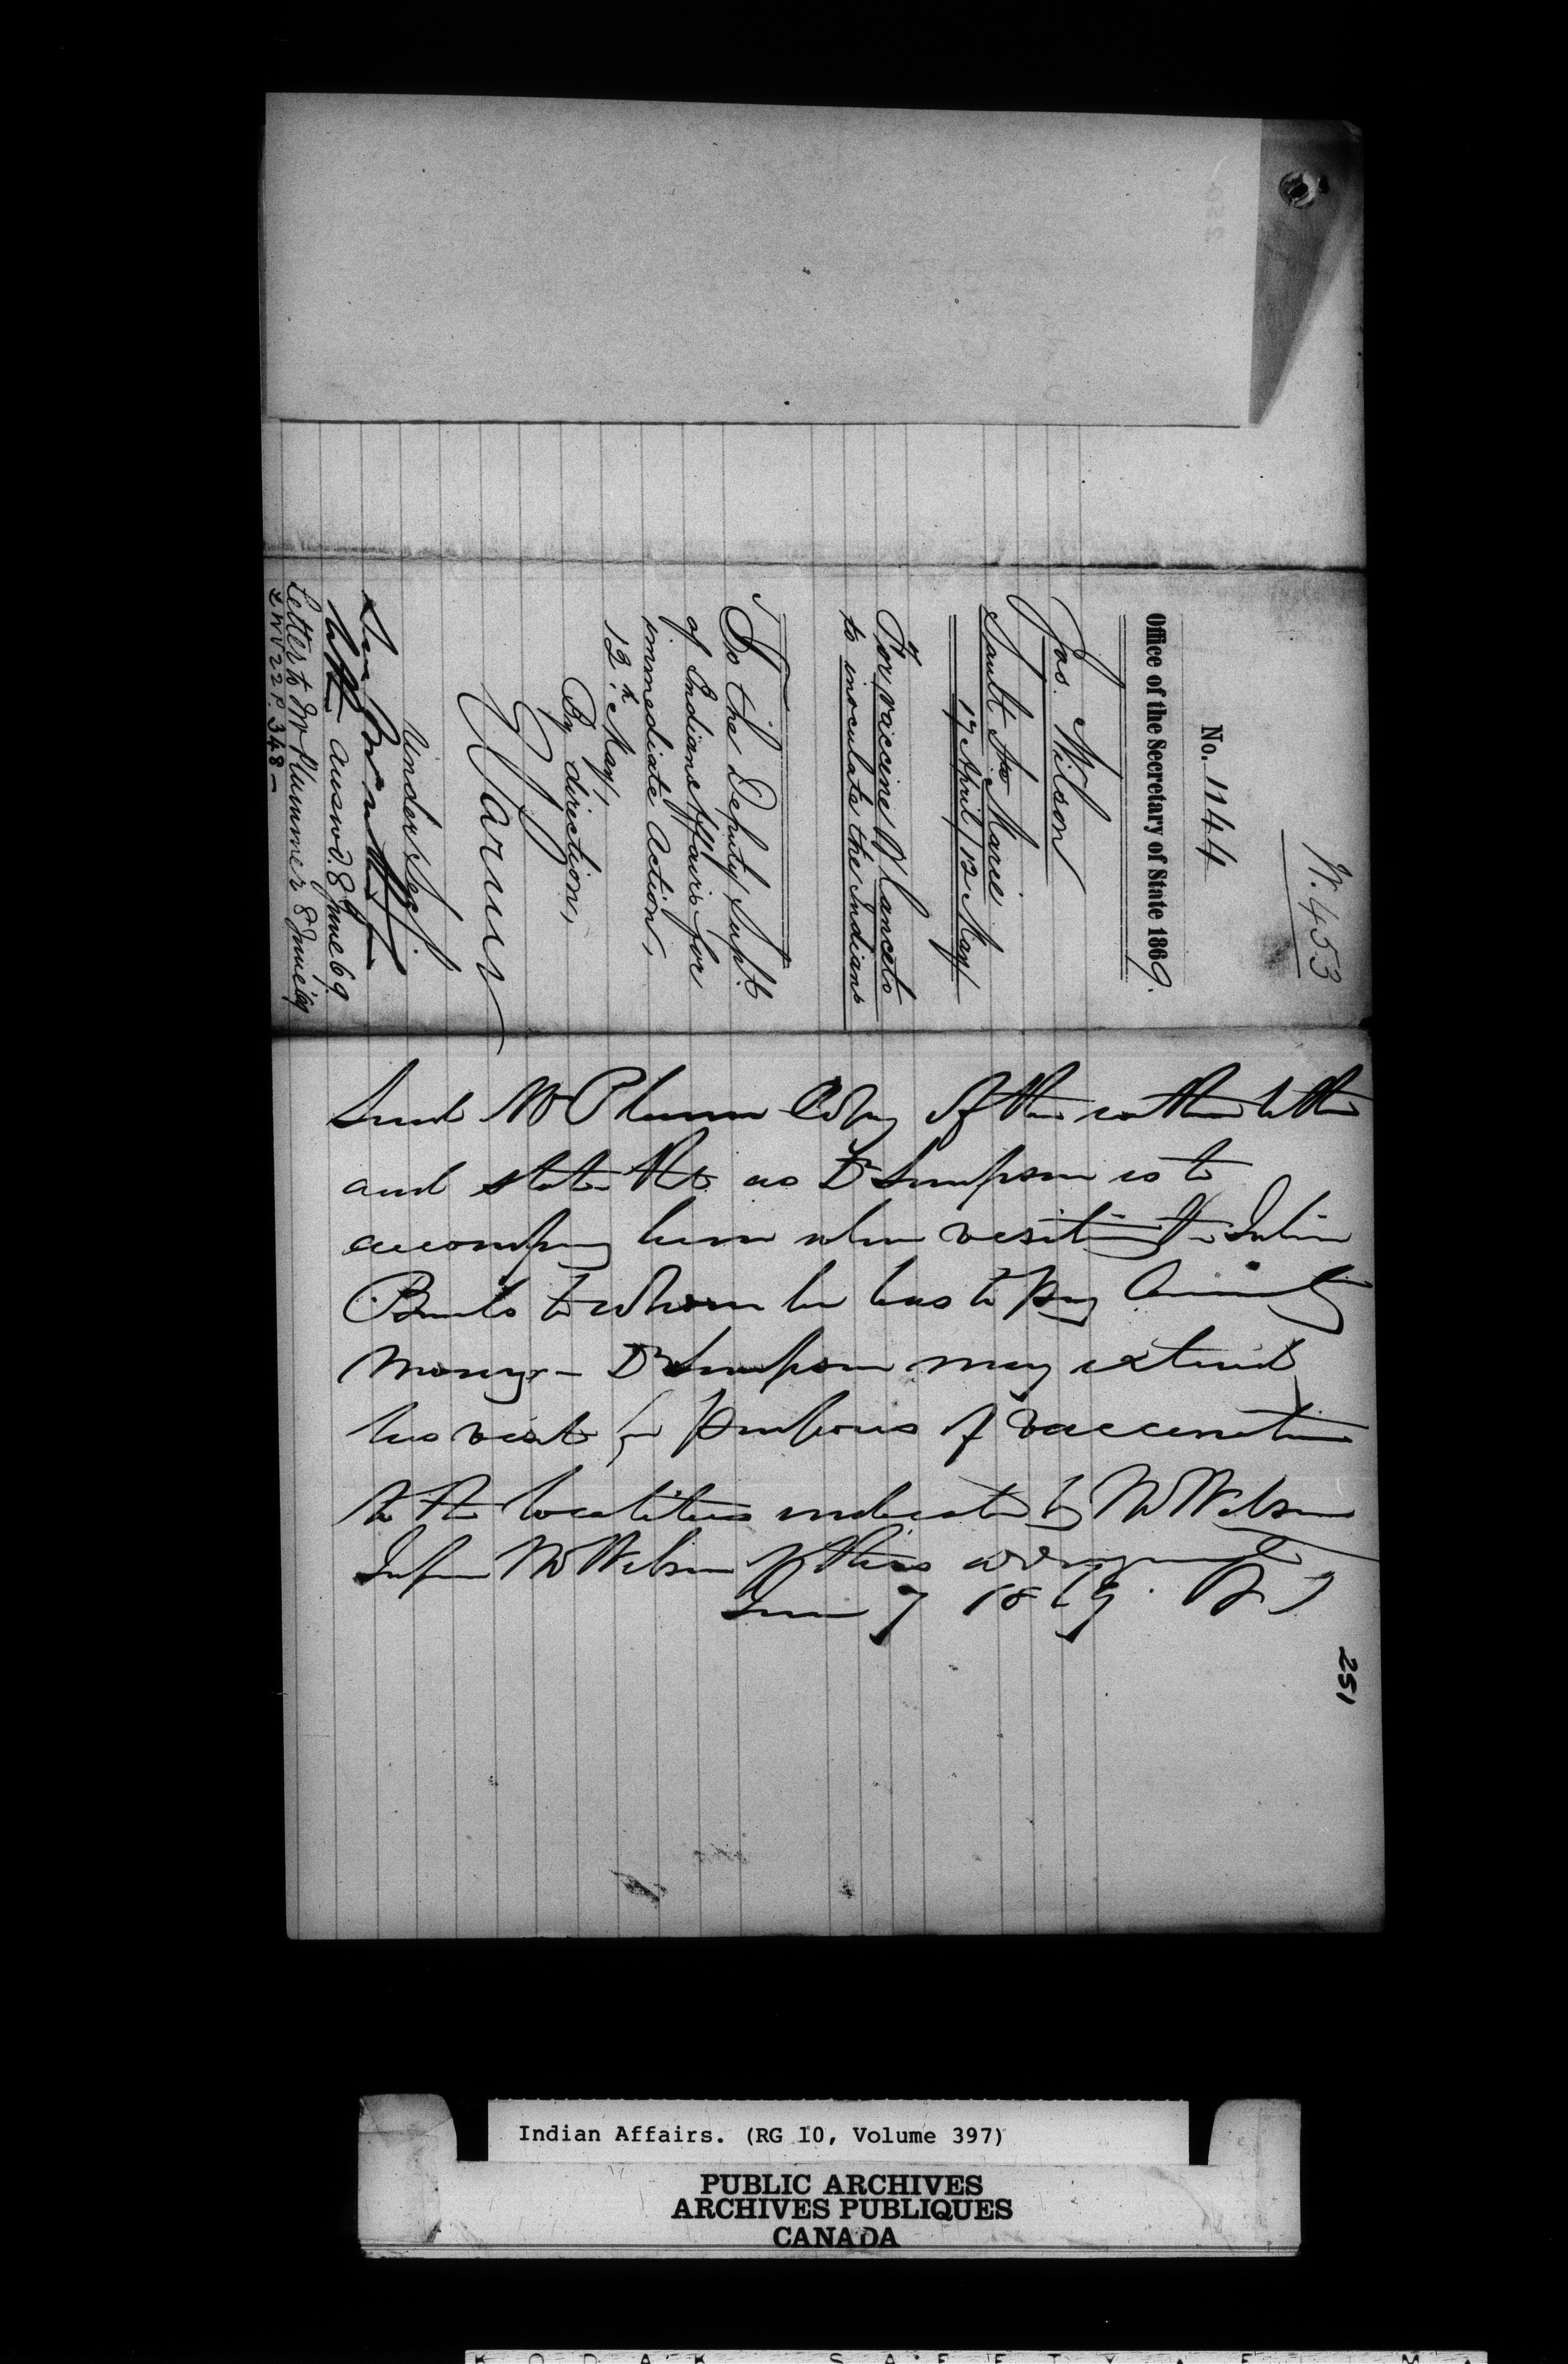 W.453
No. 1144
Office of the Secretary of State 1869.
Jas. Wilson
Sault Ste Marie
17 April / 12 May
For vaccine & lancets
to inoculate the Indians
To the Deputy Supt.
of Indian Affairs for
immediate action,
12th May,
By direction,
Under Sec
answd. 8 June 69.
Letter to Mr Plummer 8 June 69
P. 348 –
Send Mr Plummer Copy of the within letter
and state that as Dr Simpson is to
accompany him when visiting the Indian
Bands to whom he has to pay Annuity
money – Dr Simpson may extend
his visit for purposes of vaccination
to the localities indicated by Mr Wilson
Inform Mr Wilson of this arrangement
June 7 1869.
251
Indian Affairs. (RG 10, Volume 397)
PUBLIC ARCHIVES
ARCHIVES PUBLIQUES
CANADA
KODAK SAFETY